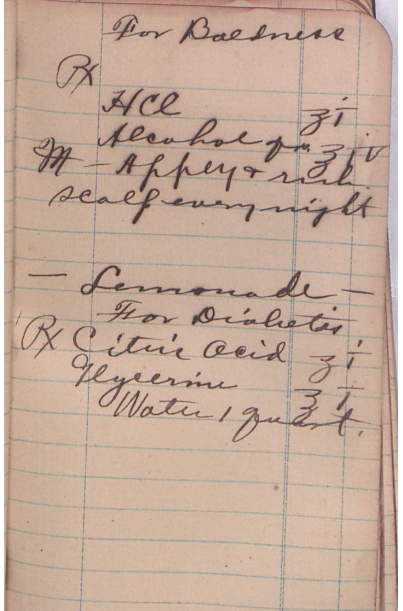 For Baldness
Rx
HCl ʒi
Alcohol q.s. ℥iv
M - Apply & rub
scalf every night
— Lemonade —
For Diabetis
Rx Citric Acid ʒi
Glycerine ℥i
Water 1 quart.